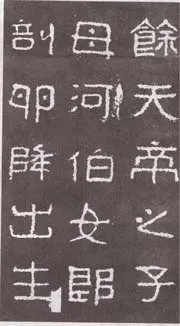 餘天帝之子
母河伯女郎
剖卵降出生